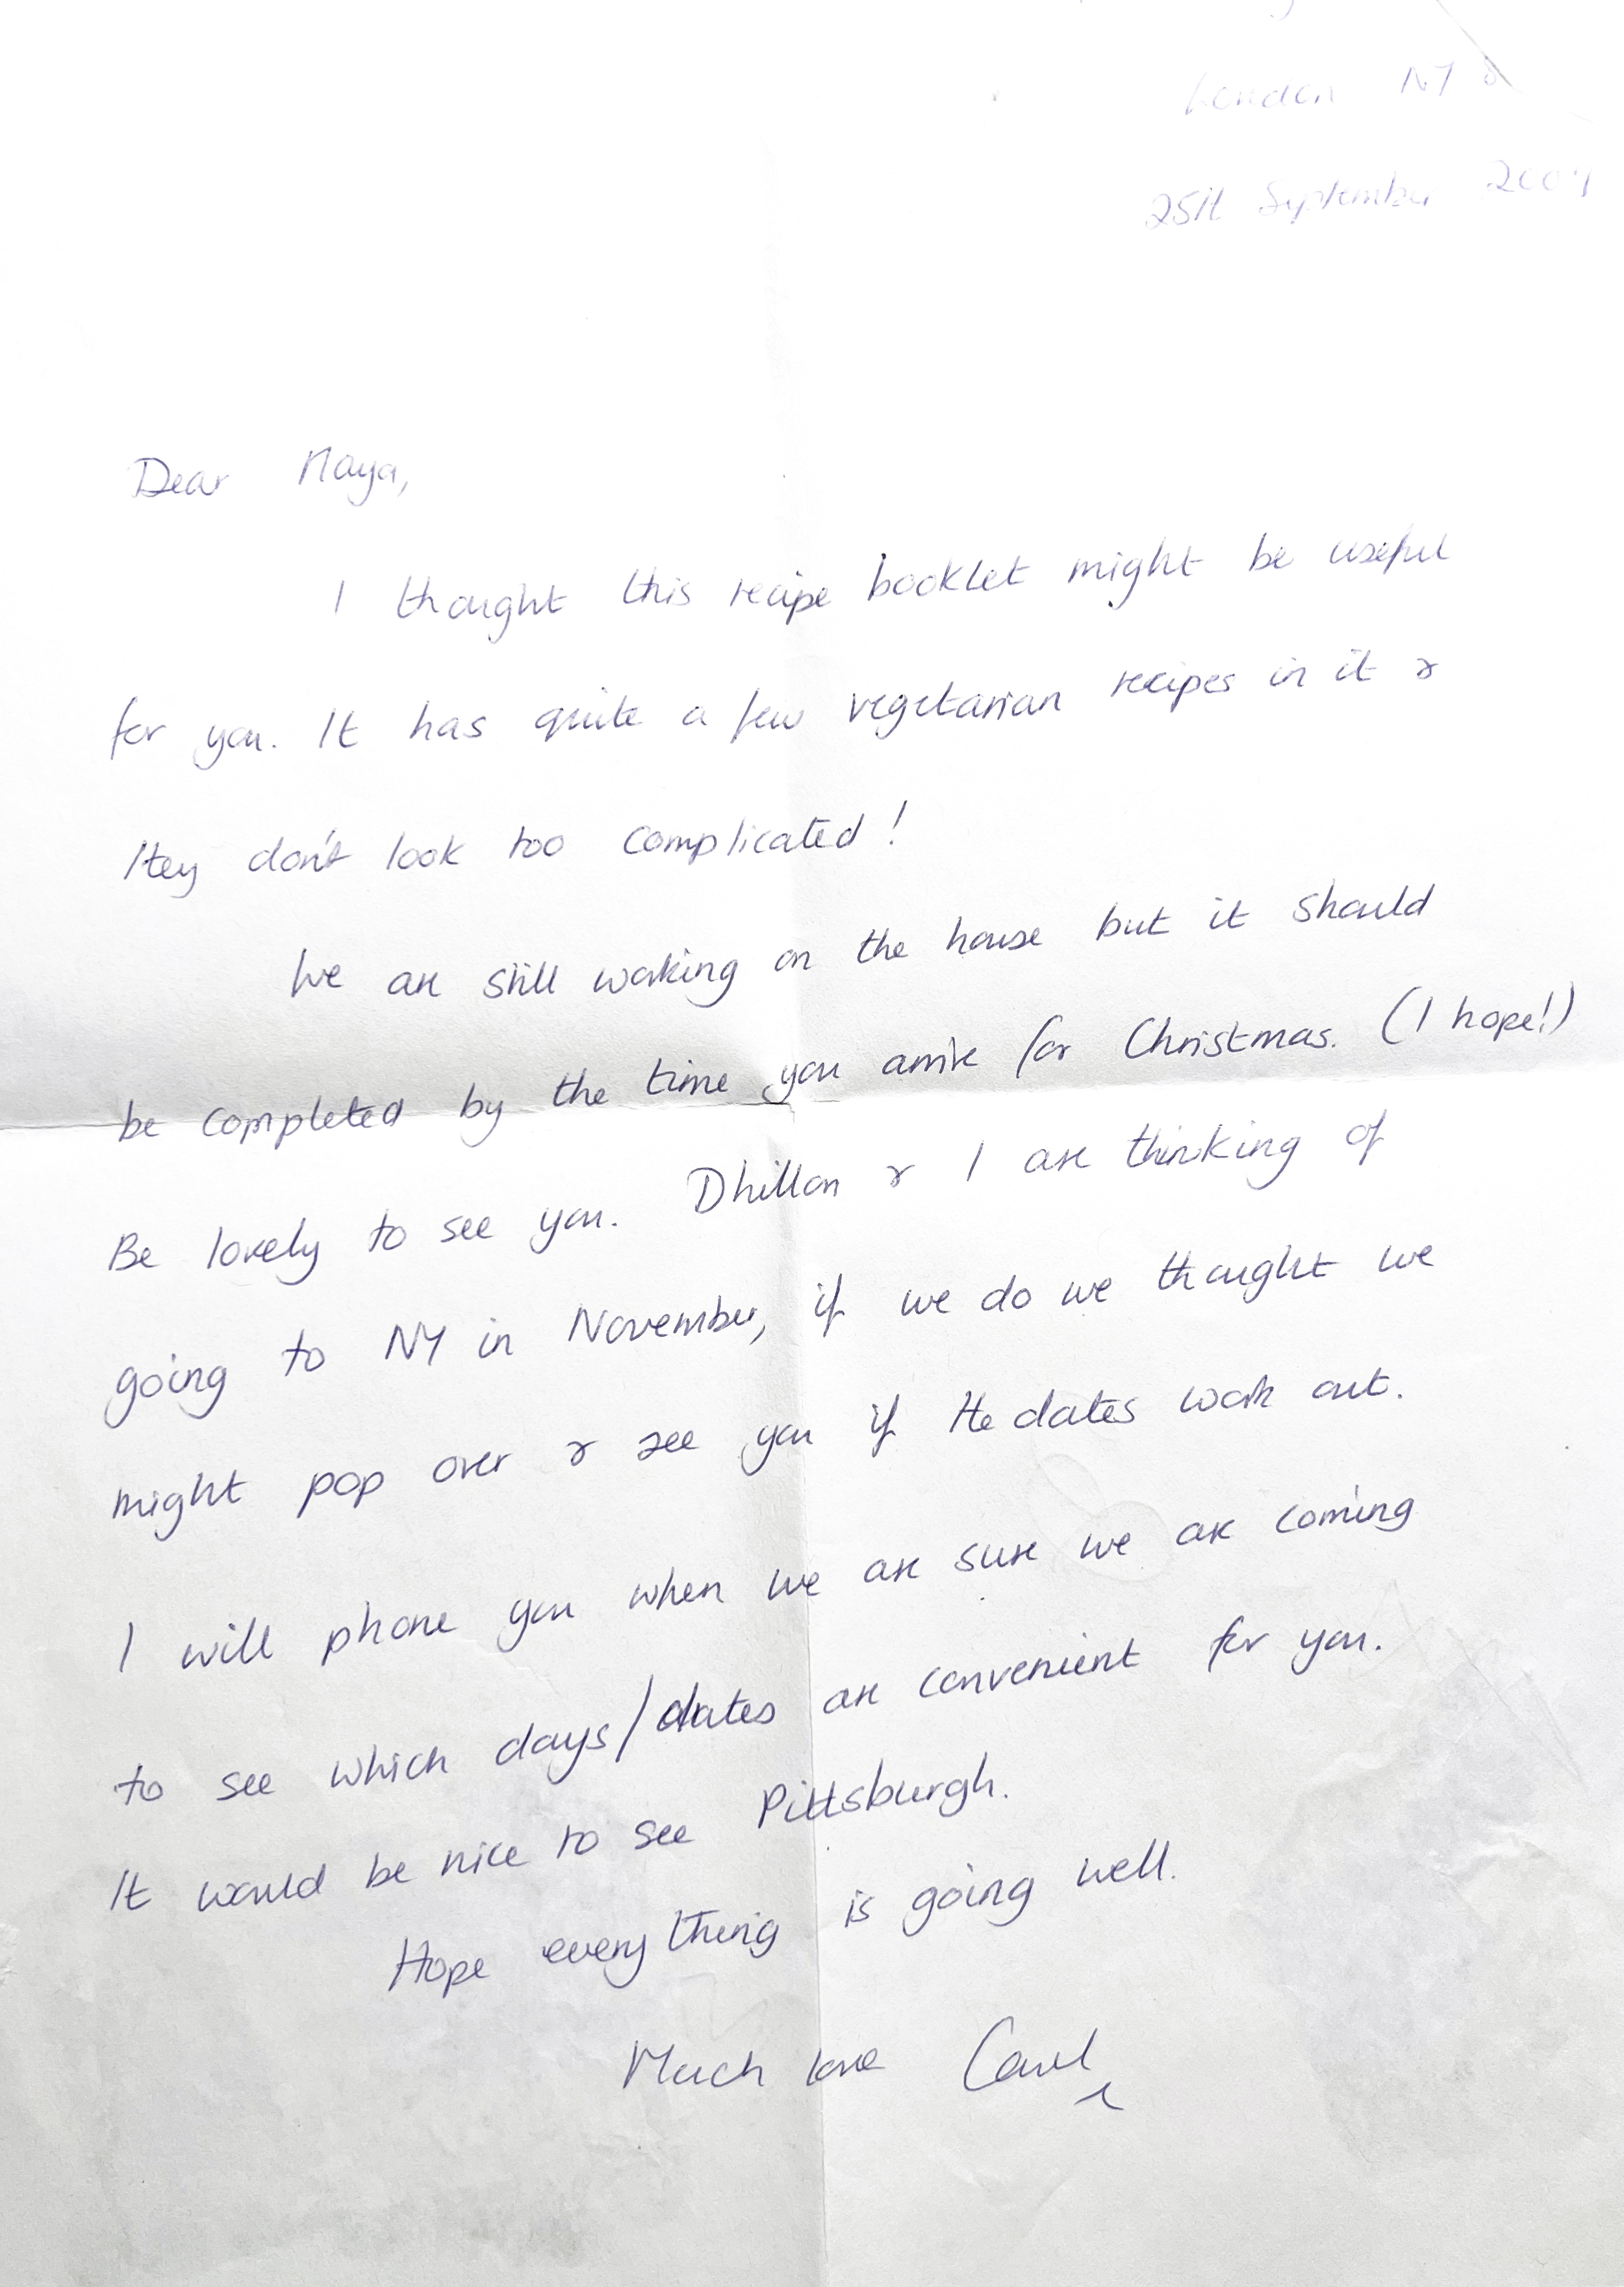 London N7
25th September
Dear Maya,
I thought this recipe booklet might be useful
for you. It has quite a few vegetarian recipes in it &
they don't look too complicated!
We are still working on the house but it should
be completed by the time you arrive for Christmas. (I hope!)
Be lovely to see you. Dhillon & I are thinking of
going to NY in November, if we do we thought we
might pop over & see you if the dates work out.
I will phone you when we are sure we are coming
to see which days/dates are convenient for you.
It would be nice to see Pittsburgh.
Hope everything is going well.
Much love Carol